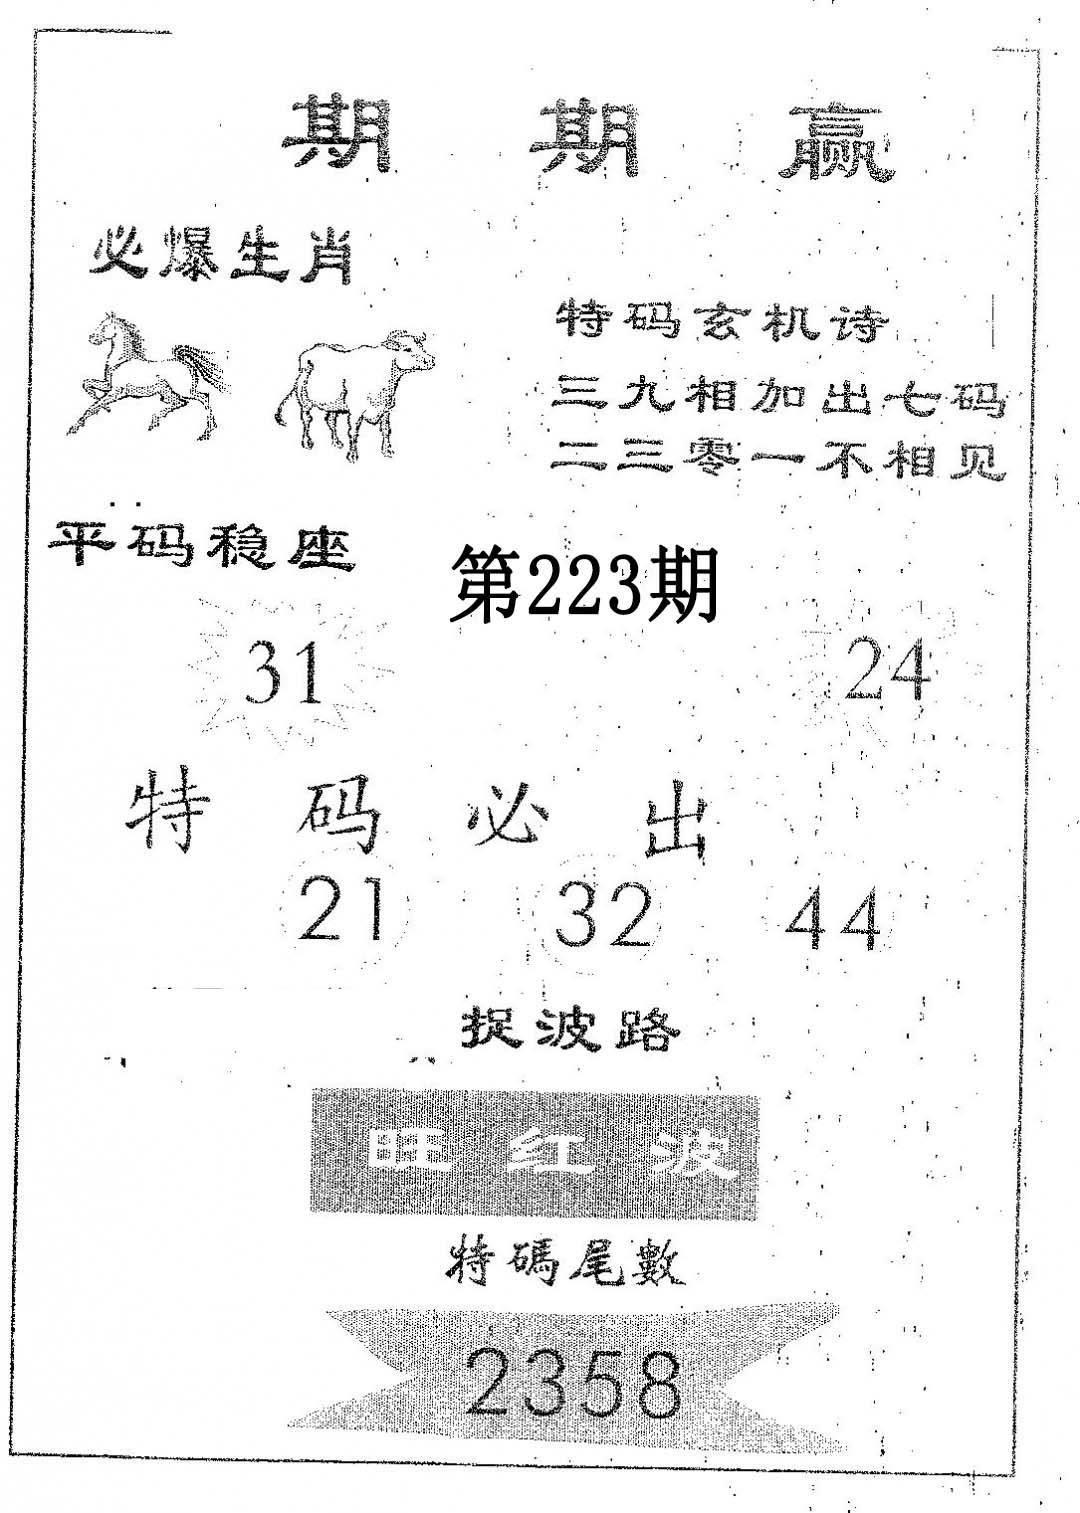 期期赢
必爆生肖
特码玄机诗
三九相加出七码
二三零一不相见
平码稳座
第223期
31
24
特码必出
21 32 44
捉波路
旺红波
特碼尾數
2358